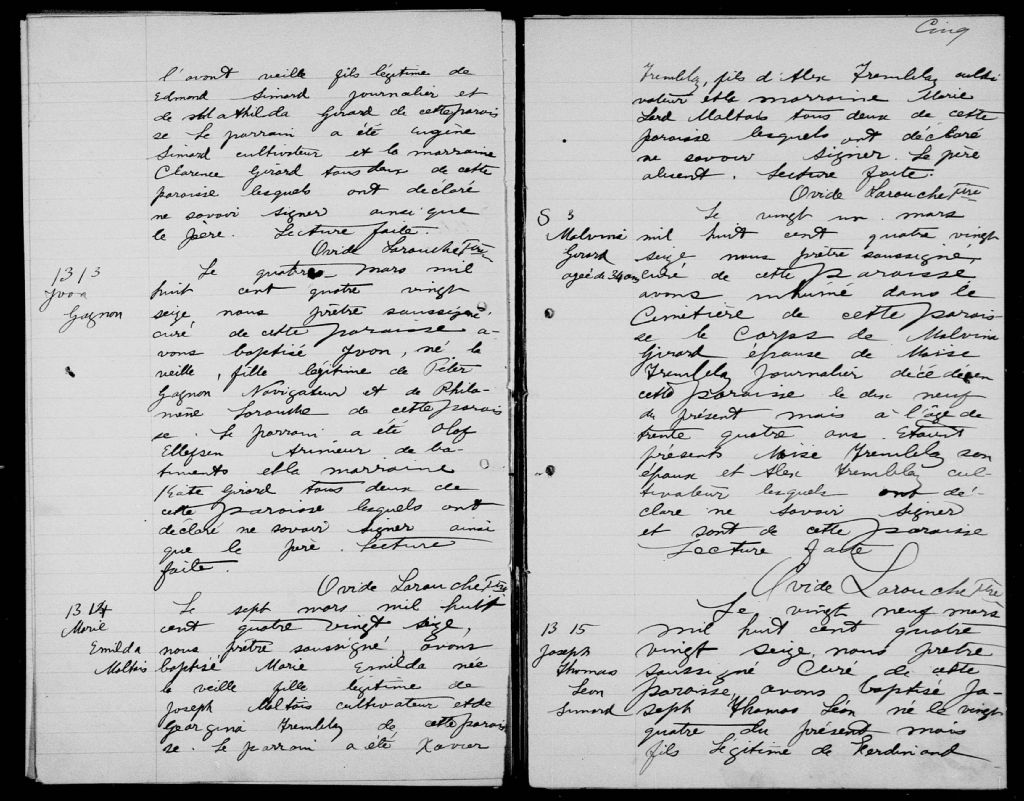 l'avant veille fils légitime de
Edmond Simard journalier et
de Mathilda Girard de cette parois
se Le parrain a été Eugène
Simard cultivateur et la marraine
Clarence Girard tous deux de cette
paroisse lesquels ont déclaré
ne savoir signer ainsi que
le père. Lecture faite.
Ovide Larouche Ptre
13 13
Yvon
Gagnon
Le quatre mars mil
huit cent quatre vingt
seize nous prêtre soussigné,
curé de cette paroisse a-
vons baptisé Yvon, né la
veille, fille légitime de Péter
Gagnon Navigateur et de Philo-
mène Larouche de cette parois
se. Le parrain a été Olof
Ellefsen Arimeur de ba-
timents et la marraine
Kate Girard tous deux de
cette paroisse lesquels ont
déclaré ne savoir signer ainsi
que le père. Lecture
faite.
Ovide Larouche Ptre
13 14
Marie
Emilda
Maltais
Le sept mars mil huit
cent quatre vingt seize,
nous prêtre soussigné avons
baptisé Marie Emilda née
la veille fille légitime de
Joseph Maltais cultivateur et de
Georgina Tremblay de cette parois
se. Le parrain a été Xavier
Cinq
Tremblay, fils d'Alex Tremblay culti
vateur et la marraine Marie
Maltais tous deux de cette
paroisse lesquels ont déclaré
ne savoir signer. Le père
absent. Lecture faite.
Ovide Larouche Ptre
S 3
Malvina
Girard
agée de 34 ans
Le vingt un mars
mil huit cent quatre vingt
seize nous prêtre soussigné,
curé de cette paroisse
avons inhumé dans le
Cimetière de cette parois
se le corps de Malvina
Girard épouse de Moise
Tremblay journalier décédée en
cette paroisse le dix neuf
du présent mois à l'âge de
trente quatre ans. Etaient
présents Moise Tremblay son
époux et Alex Tremblay cul-
tivateur lesquels ont dé-
claré ne savoir signer
et sont de cette paroisse
Lecture faite
Ovide Larouche Ptre
13 15
Joseph
Thomas
Léon
Simard
Le vingt neuf mars
mil huit cent quatre
vingt seize, nous prêtre
soussigné Curé de cette
paroisse, avons baptisé Jo-
seph Thomas Léon né le vingt
quatre du présent mois
fils légitime de Ferdinand